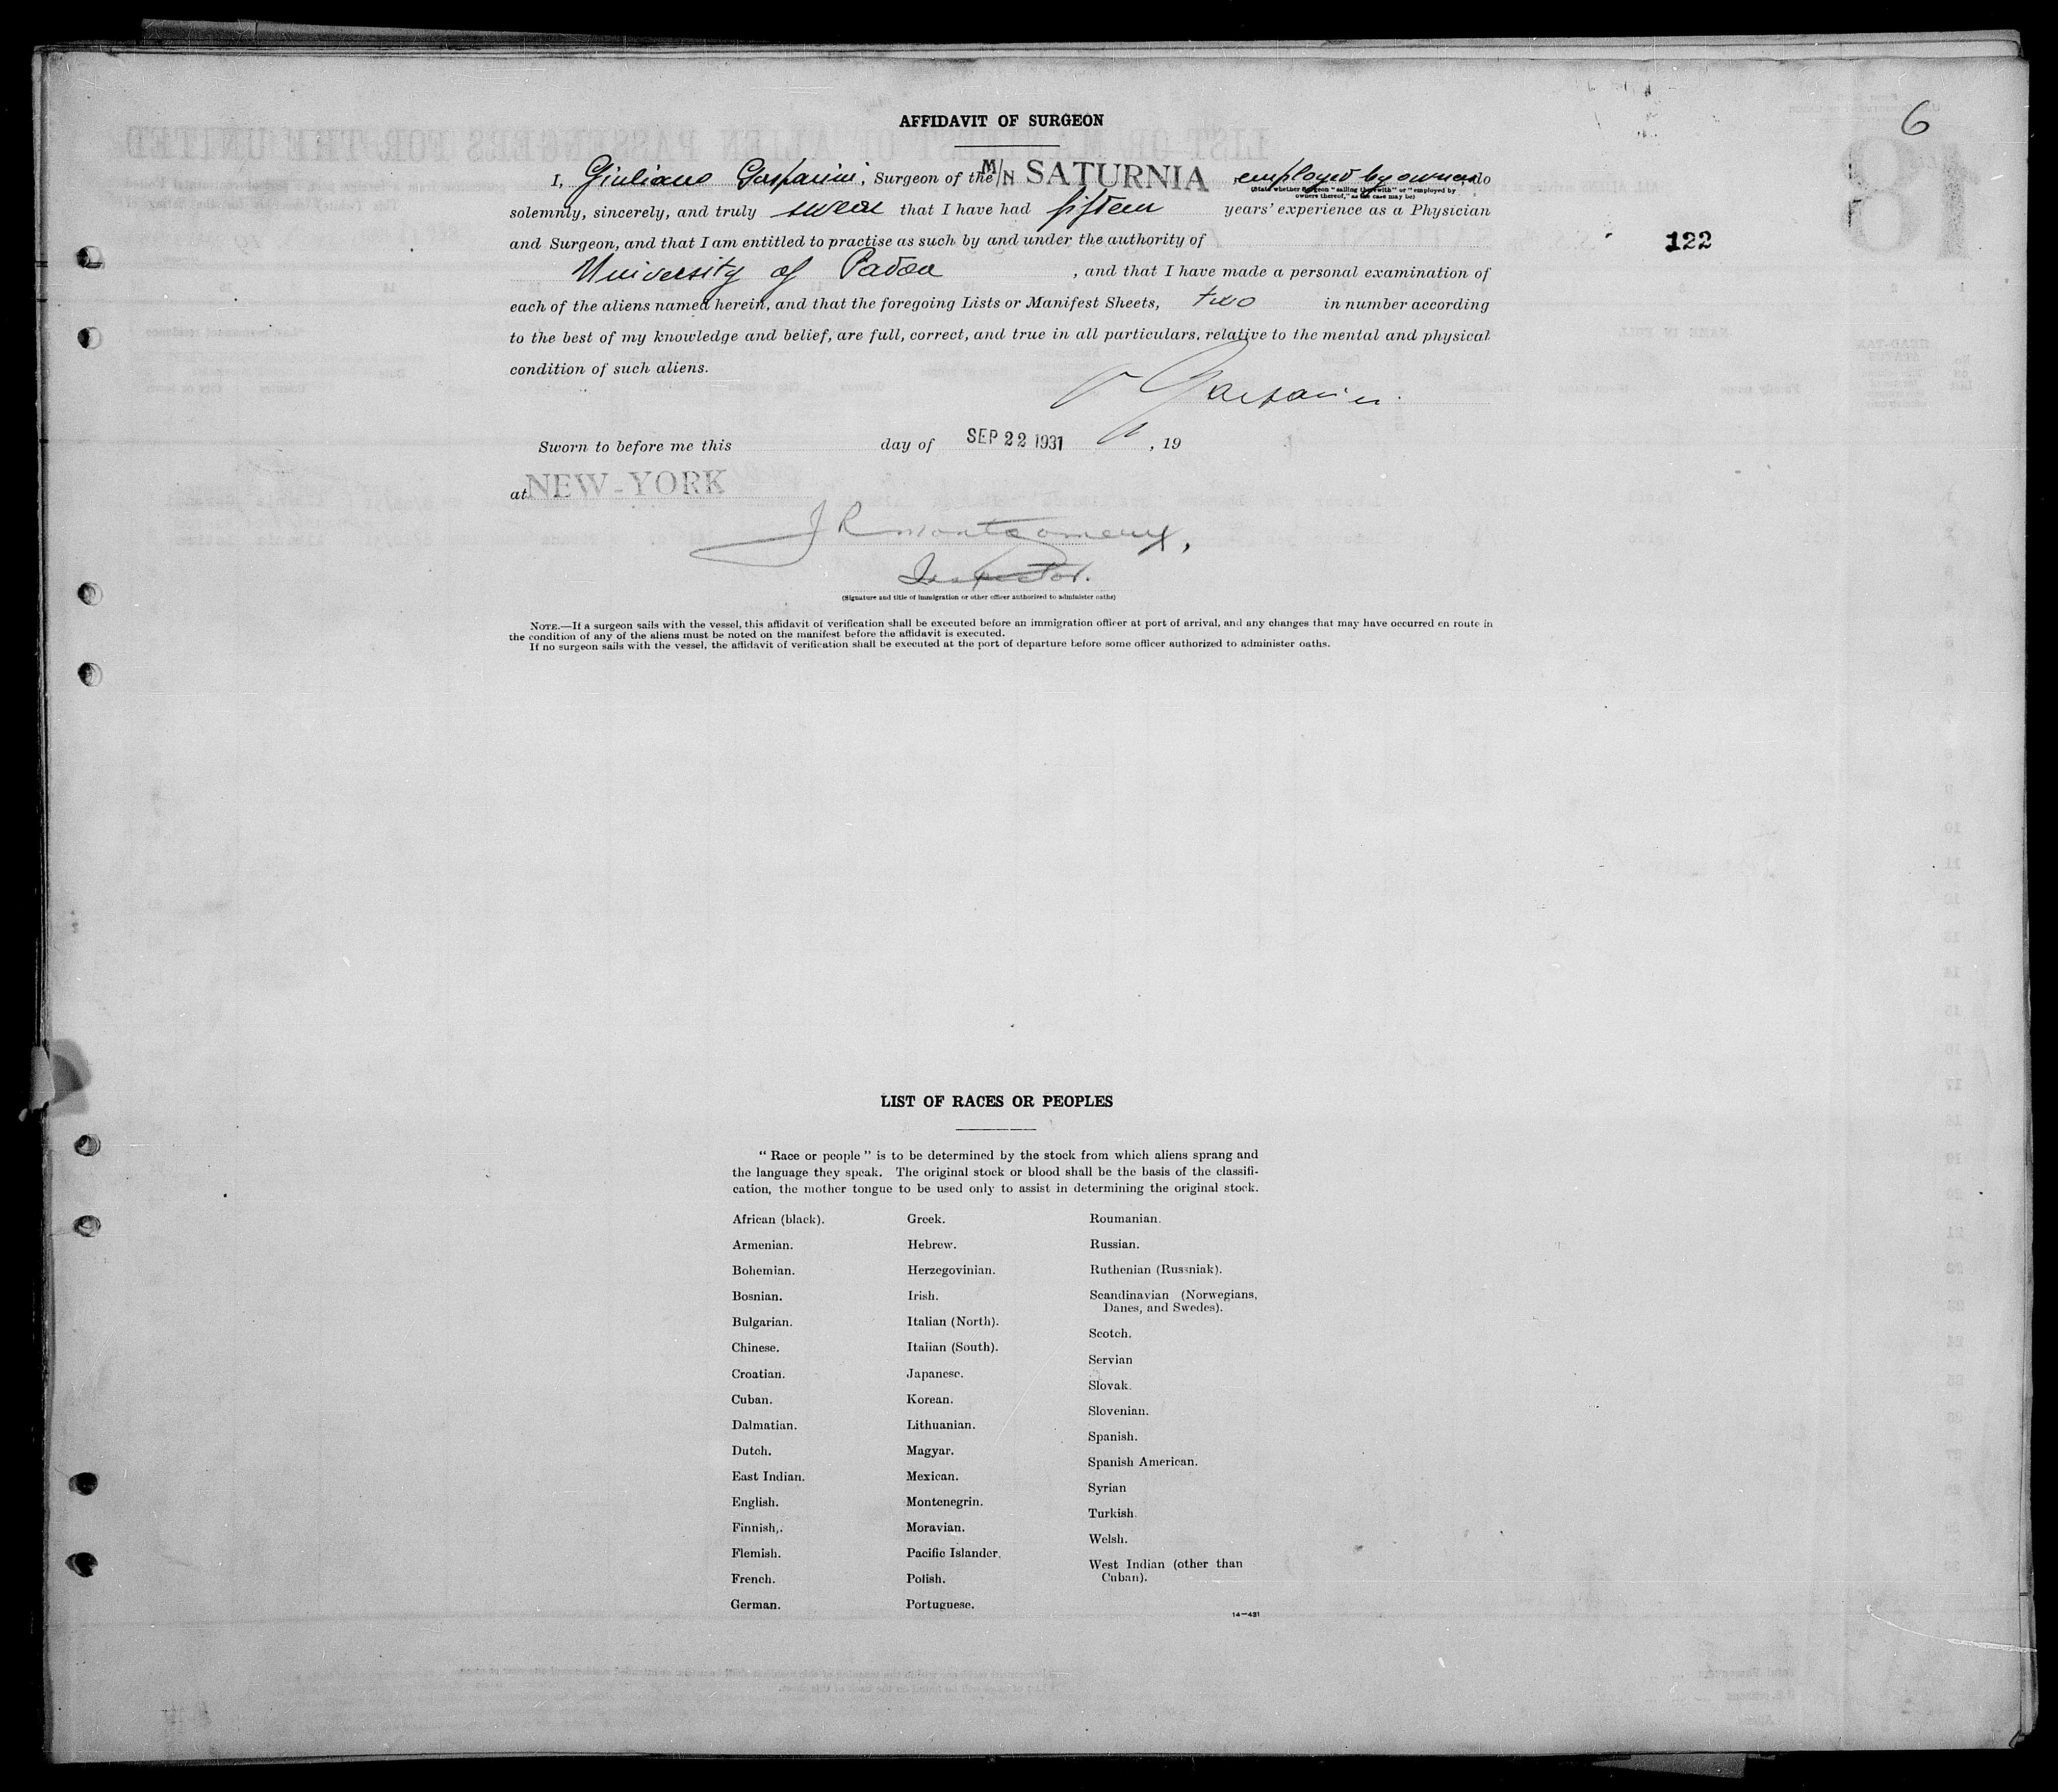 6
AFFIDAVIT OF SURGEON
I, Giuliano Gasparini, Surgeon of the M/N SATURNIA employed by owners, do
(State whether Surgeon "sailing therewith" or "employed by
owners thereof," as the case may be)
solemnly, sincerely, and truly swear that I have had fifteen years' experience as a Physician
and Surgeon, and that I am entitled to practise as such by and under the authority of
122
University of Padova, and that I have made a personal examination of
each of the aliens named herein, and that the foregoing Lists or Manifest Sheets, two in number according
to the best of my knowledge and belief, are full, correct, and true in all particulars, relative to the mental and physical
condition of such aliens.
Gasparini
Sworn to before me this day of SEP 22 1931, 19
at NEW-YORK
J R Montgomery,
Inspector.
(Signature and title of immigration or other officer authorized to administer oaths)
NOTE.—If a surgeon sails with the vessel, this affidavit of verification shall be executed before an immigration officer at port of arrival, and any changes that may have occurred en route in
the condition of any of the aliens must be noted on the manifest before the affidavit is executed.
If no surgeon sails with the vessel, the affidavit of verification shall be executed at the port of departure before some officer authorized to administer oaths.
LIST OF RACES OR PEOPLES
"Race or people" is to be determined by the stock from which aliens sprang and
the language they speak. The original stock or blood shall be the basis of the classifi-
cation, the mother tongue to be used only to assist in determining the original stock.
African (black).
Armenian.
Bohemian.
Bosnian.
Bulgarian.
Chinese.
Croatian.
Cuban.
Dalmatian.
Dutch.
East Indian.
English.
Finnish.
Flemish.
French.
German.
Greek.
Hebrew.
Herzegovinian.
Irish.
Italian (North).
Italian (South).
Japanese.
Korean.
Lithuanian.
Magyar.
Mexican.
Montenegrin.
Moravian.
Pacific Islander.
Polish.
Portuguese.
Roumanian.
Russian.
Ruthenian (Russniak).
Scandinavian (Norwegians,
Danes, and Swedes).
Scotch.
Servian
Slovak.
Slovenian.
Spanish.
Spanish American.
Syrian
Turkish.
Welsh.
West Indian (other than
Cuban).
14—431